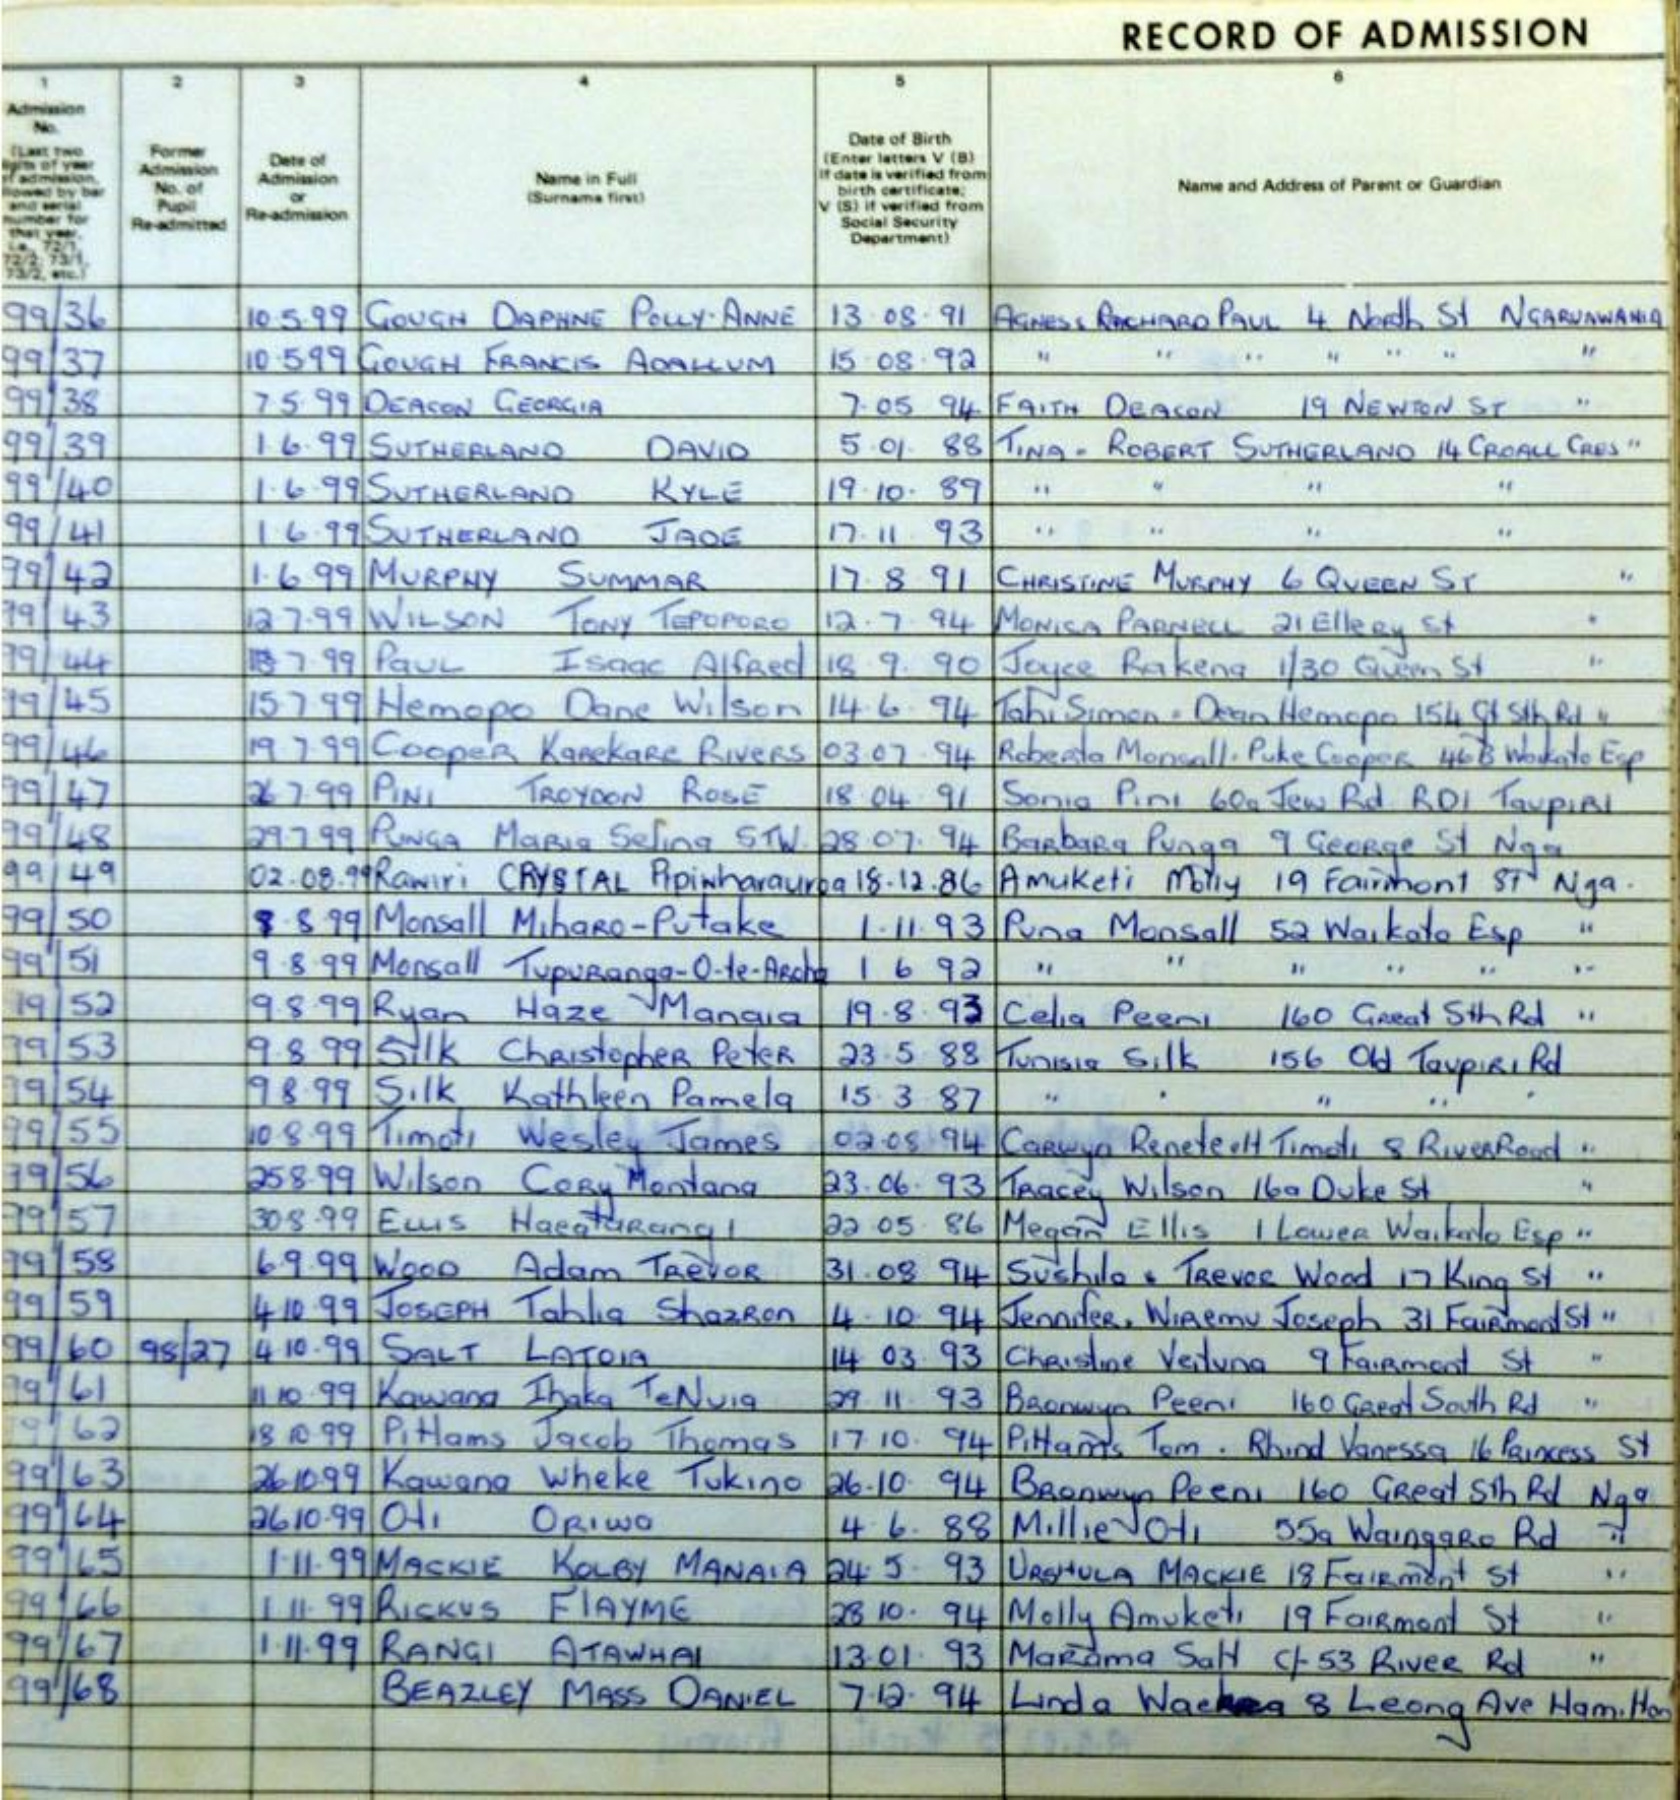 RECORD OF ADMISSION
1 2 3 4 5 6
Admission No. (Last two digits of year of admission, followed by bar and serial number for that year, i.e., 72/1, 72/2, 73/1, 73/2, etc.)
Former Admission No. of Pupil Re-admitted
Date of Admission or Re-admission
Name in Full (Surname first)
Date of Birth (Enter letters V (B) if date is verified from birth certificate; V (S) if verified from Social Security Department)
Name and Address of Parent or Guardian
99/36 10.5.99 GOUGH DAPHNE POLLY-ANNE 13.08.91 AGNES & RACHARD PAUL 4 North St NGARUAWAHIA
99/37 10.5.99 GOUGH FRANCIS ADALLUM 15.08.92 " " " " " " "
99/38 7.5.99 DEACON GEORGIA 7.05.94 FAITH DEACON 19 NEWTON ST "
99/39 1.6.99 SUTHERLAND DAVID 5.01.88 TINA - ROBERT SUTHERLAND 14 CROALL CRES "
99/40 1.6.99 SUTHERLAND KYLE 19.10.89 " " " "
99/41 1.6.99 SUTHERLAND JADE 17.11.93 " " " "
99/42 1.6.99 MURPHY SUMMAR 17.8.91 CHRISTINE MURPHY 6 QUEEN ST "
99/43 12.7.99 WILSON TONY TEPOPORO 12.7.94 MONICA PARNELL 21 Ellery St "
99/44 7.99 PAUL Isaac Alfred 18.9.90 Joyce Rakena 1/30 Queen St "
99/45 15.7.99 Hemopo Dane Wilson 14.6.94 Tahi Simon - Dean Hemopo 154 Gt Sth Rd "
99/46 19.7.99 Cooper Karekare Rivers 03.07.94 Roberta Monsall - Puke Cooper 46B Waikato Esp
99/47 26.7.99 PINI TROYDON ROSE 18.04.91 Sonia Pini 60a Tew Rd RD1 TAUPIRI
99/48 29.7.99 PUNGA Maria Selina STW. 28.07.94 Barbara Punga 9 George St Nga
99/49 02.08.99 Rawiri CRYSTAL Pipiwharauroa 18.12.86 Amuketi Molly 19 Fairmont ST Nga.
99/50 8.99 Monsall Miharo-Putake 1.11.93 Puna Monsall 52 Waikato Esp "
99/51 9.8.99 Monsall Tupuranga-O-te-Aroha 1 6 92 " " " " " "
99/52 9.8.99 Ryan Haze Manaia 19.8.93 Celia Peeni 160 Great Sth Rd "
99/53 9.8.99 Silk Christopher Peter 23.5.88 Tunisia Silk 156 Old Taupiri Rd
99/54 9.8.99 Silk Kathleen Pamela 15.3.87 " " " " "
99/55 10.8.99 Timoti Wesley James 02.08.94 Carwyn Timoti 8 River Road "
99/56 25.8.99 Wilson Cory Montana 23.06.93 Tracey Wilson 16a Duke St "
99/57 30.8.99 ELLIS Haeatarangi 22.05.86 Megan Ellis 1 Lower Waikato Esp "
99/58 6.9.99 WOOD Adam Trevor 31.08.94 Sushila & Trevor Wood 17 King St "
99/59 4.10.99 JOSEPH Tahlia Shazron 4.10.94 Jennifer, Wiremu Joseph 31 Fairmont St "
99/60 98/27 4.10.99 SALT LATOIA 14.03.93 Christine Veituna 9 Fairmont St "
99/61 11.10.99 Kawana Ihaka TeNuia 29.11.93 Bronwyn Peeni 160 Great South Rd "
99/62 18.10.99 Pittams Jacob Thomas 17.10.94 Pittams Tom. Rhind Vanessa 16 Princess St
99/63 26.10.99 Kawana Wheke Tukino 26.10.94 Bronwyn Peeni 160 Great Sth Rd Nga
99/64 26.10.99 Oti ORIWO 4.6.88 Millie Oti 55a Waingaro Rd "
99/65 1.11.99 MACKIE KOLBY MANAIA 24.5.93 URSHULA MACKIE 18 Fairmont St "
99/66 1.11.99 RICKUS FLAYME 28.10.94 Molly Amuketi 19 Fairmont St "
99/67 1.11.99 RANGI ATAWHAI 13.01.93 Marama Salt C/- 53 River Rd "
99/68 BEAZLEY MASS DANIEL 7.12.94 Linda 8 Leong Ave Hamilton